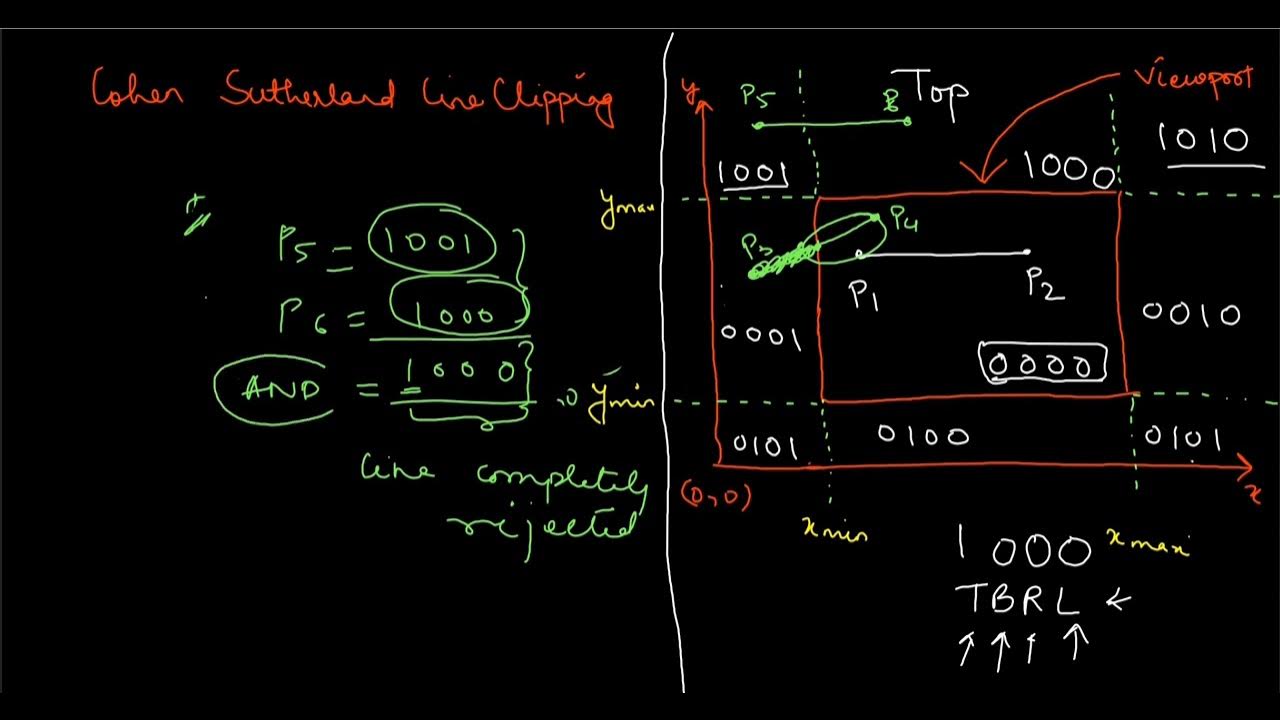 Cohen Sutherland Line Clipping
P5 = 1001
P6 = 1000
AND = 1000
Line completely
rejected
y
P5
Top
Viewport
1001
1000
1010
ymax
P3
P4
P1
P2
0001
0000
0010
ymin
0101
0100
0101
(0,0)
x
xmin
xmax
1000
TBRL ←